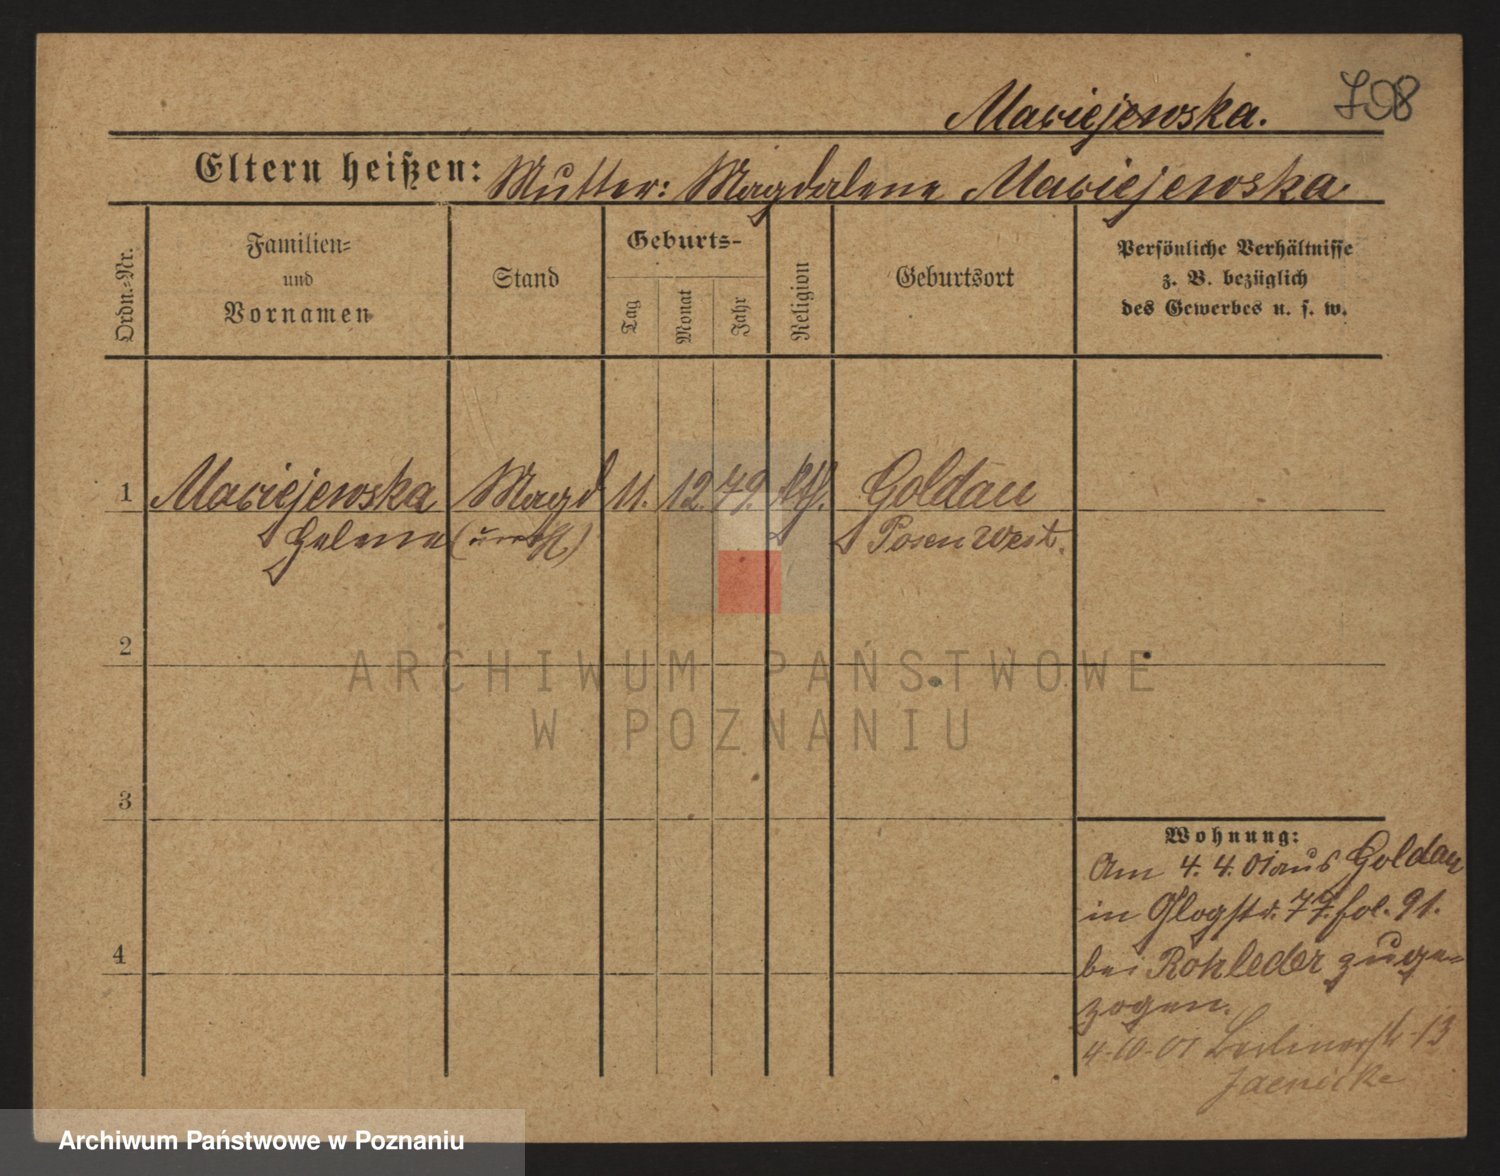 Maciejewska.
798
Eltern heißen: Mutter: Magdalena Maciejewska.
Ordn.-Nr.
Familien-
und
Vornamen
Stand
Geburts-
Tag
Monat
Jahr
Religion
Geburtsort
Persönliche Verhältnisse
z. B. bezüglich
des Gewerbes u. s. w.
1 Maciejewska Magd 11. 12. 79. kth. Goldau
Helene Posen West.
2
3
4
Wohnung:
Am 4. 4. 01 aus Goldau
in Glogstr. 77. fol. 91.
bei Rohleder zuge-
zogen.
4-10-01 Berlinerstr 13
Jaenicke
ARCHIWUM PAŃSTWOWE
W POZNANIU
Archiwum Państwowe w Poznaniu